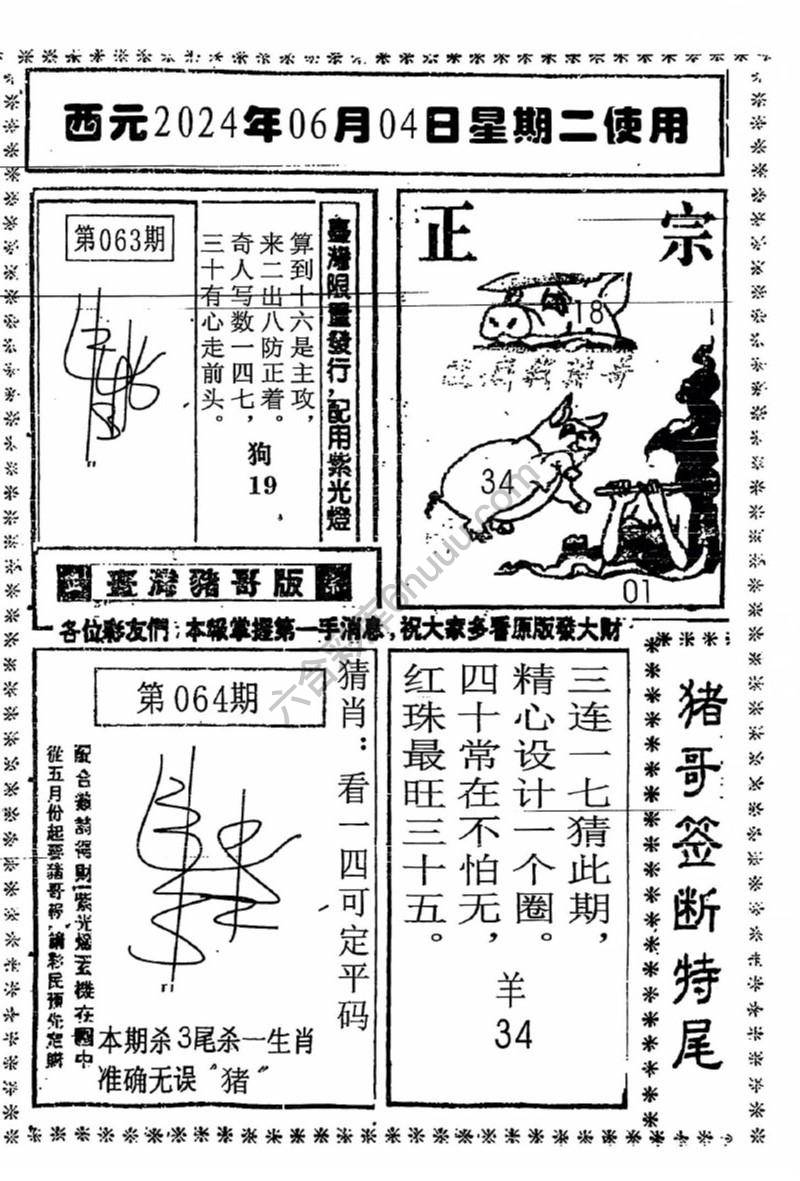 西元2024年06月04日星期二使用
第063期
臺灣限量發行，配用紫光燈
算到十六是主攻，
来二出八防正着。
奇人写数一四七，
三十有心走前头。
狗
19
正宗
18
34
01
臺灣豬哥版
各位彩友們：本報掌握第一手消息，祝大家多看原版發大財
第064期
猜肖：看一四可定平码
從五月份起要豬哥報，請彩民預先定購
本期杀3尾杀一生肖
准确无误“猪”
三连一七猜此期，
精心设计一个圈。
四十常在不怕无，
红珠最旺三十五。
羊
34
猪哥签断特尾
六合彩库6huuu.com